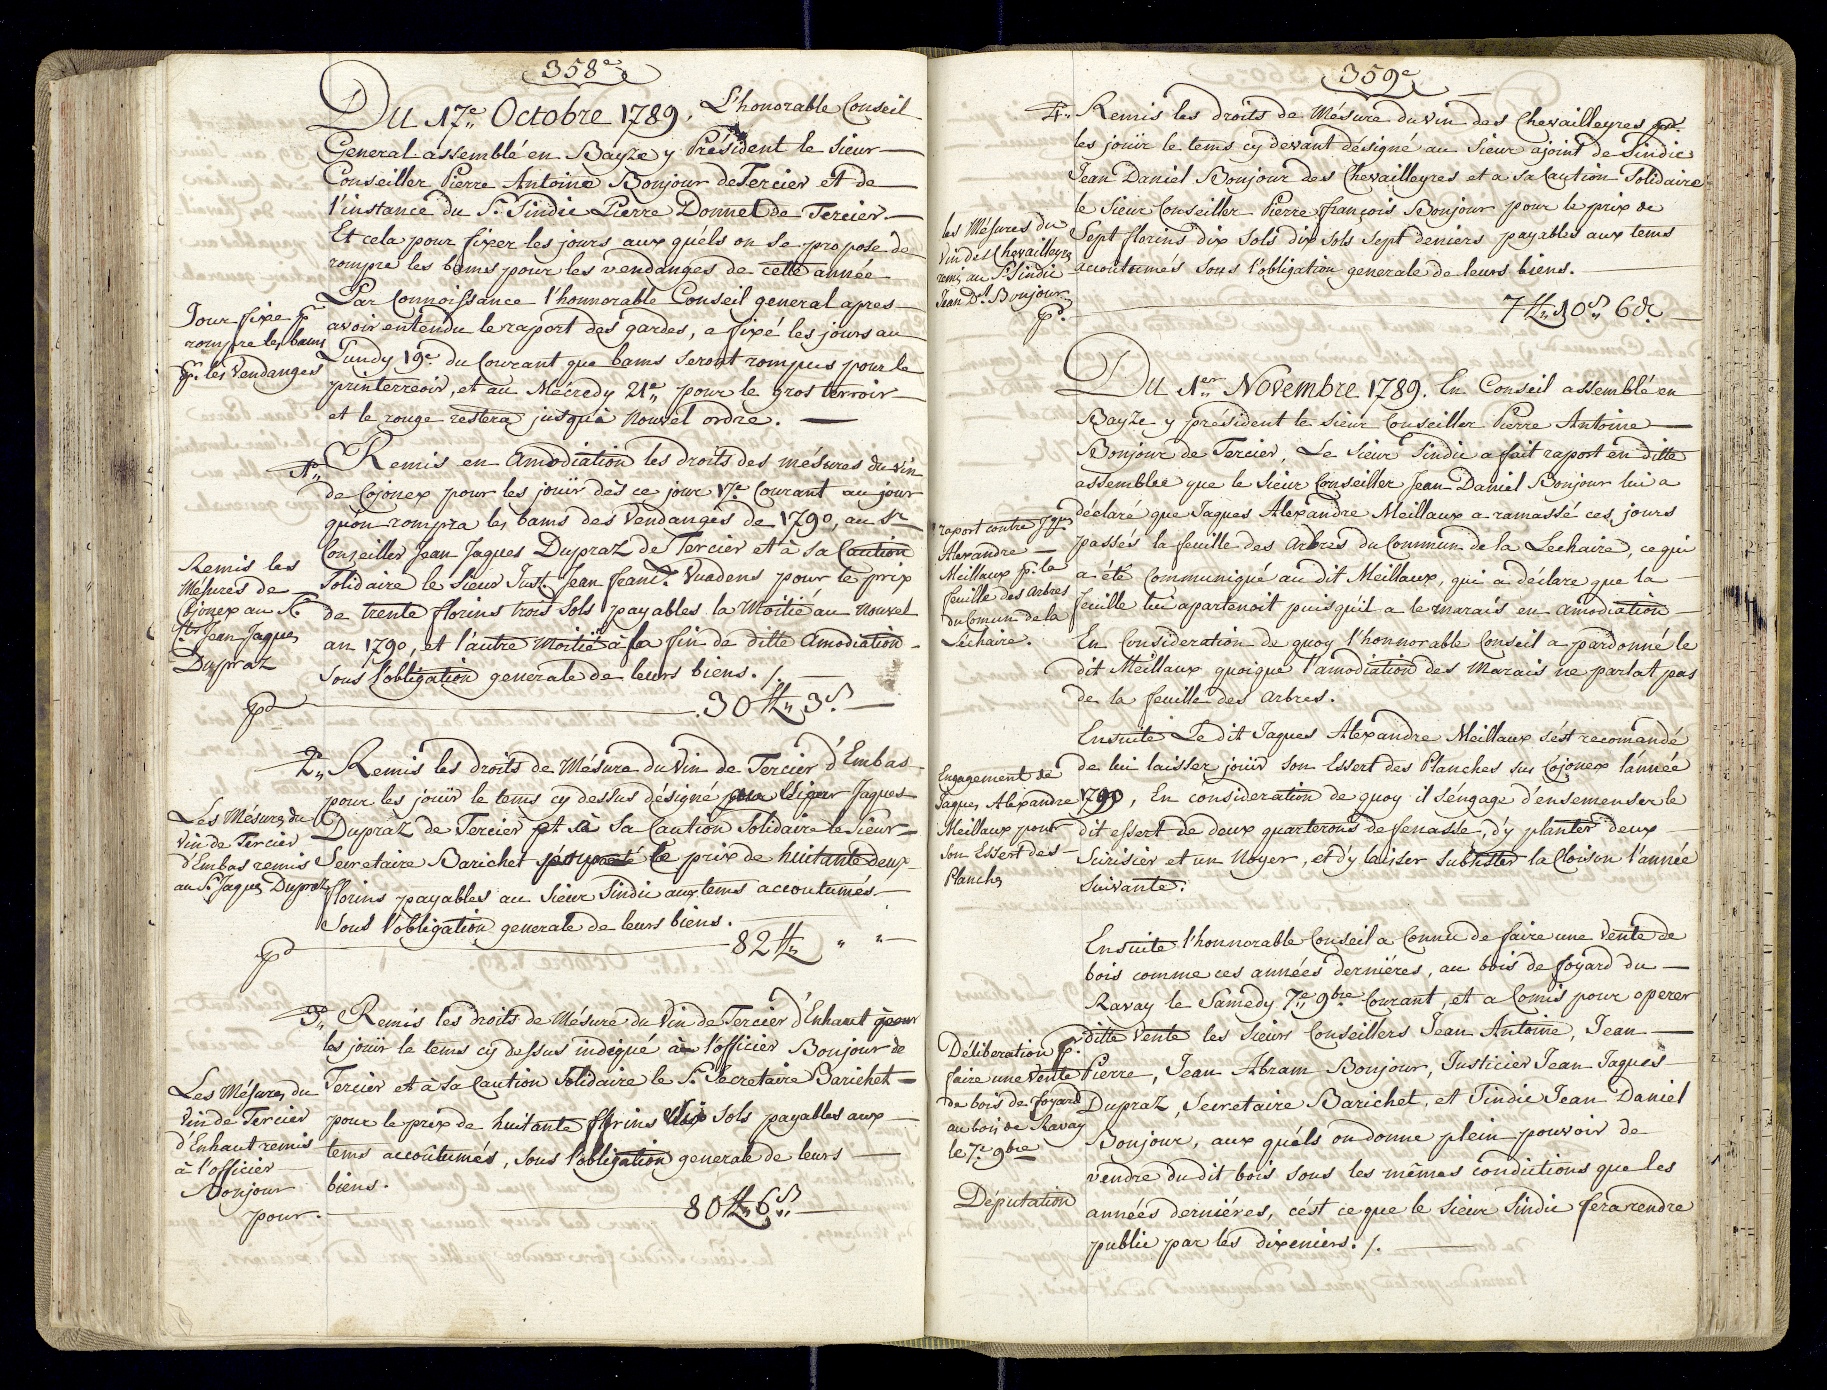 358e
Du 17e,, Octobre 1789, L'honorable Conseil
General assemblé en Bayze y Président le Sieur
Conseiller Pierre Antoine Bonjour de Tercier et de
l'instance du Sr. Sindic Pierre Donnet de Tercier.
Et cela pour fixer les jours aux quéls on se propose de
rompre les bams pour les vendanges de cette année
Par Connoissance l'honnorable Conseil general apres
avoir entendu le raport des gardes, a fixé les jours au
Lundy 19e. du Courant que bams seront rompus pour le
printerreoir, et au Mécredy 21e,, pour le gros terroir
et le rouge restera jusqu'à nouvel ordre.
Jour fixe pr
rompre les bams
pr. les Vendanges
1o,, Remis en Amodiation les droits des mésures du vin
de Cojonex pour les jouïr dès ce jour 17e. Courant au jour
qu'on rompra les bams des Vendanges de 1790, au Sr
Conseiller Jean Jaques Dupraz de Tercier et à sa Caution
Solidaire le Sieur Just. Jean Fean... Vuadens pour le prix
de trente florins trois Sols payables la Moitié au nouvel
an 1790, et l'autre Moitié à la fin de ditte Amodiation
sous l'obligation generale de leurs biens. /.
Remis les
Mésures de
Cojonex au Sr.
Jean Jaques
Dupraz
pr 30 ff,, 3 s.
2o,, Remis les droits de Mésure du Vin de Tercier d'Embas
pour les jouïr le tems cy dessus désigné au Sieur Jaques
Dupraz de Tercier et à sa Caution Solidaire le Sieur
Secretaire Barichet pour le prix de huitante deux
florins payables au Sieur Sindic aux tems accoutumés
Sous l'obligation generale de leurs biens.
Les Mésures du
Vin de Tercier
d'Embas remis
au Sr. Jaques Dupraz
pr 82 ff,, " "
3o,, Remis les droits de Mésure du Vin de Tercier d'Enhaut pour
les jouïr le tems cy dessus indiqué à l'officier Bonjour de
Tercier et à sa Caution Solidaire le Sr. Secretaire Barichet
pour le prix de huitante florins six Sols payables aux
tems accoutumés, sous l'obligation generale de leurs
biens.
Les Mésures du
Vin de Tercier
d'Enhaut remis
à l'officier
Bonjour
pour. 80 ff,, 6 s.
359e
4o,, Remis les droits de Mésure du vin des Chevailleyres pr.
les jouïr le tems cy devant désigné au Sieur ajoint de Sindic
Jean Daniel Bonjour des Chevailleyres et a sa Caution Solidaire
le Sieur Conseiller Pierre François Bonjour pour le prix de
Sept florins dix Sols dix sols sept deniers payables aux tems
accoutumés sous l'obligation generale de leurs biens.
les Mésures du
Vin des Chevailleyres
remis au Sr Sindic
Jean Dl. Bonjour
pr. 7 ff,, 10 s,, 6 d.
Du 1er,, Novembre 1789. En Conseil assemblé en
Bayze y président le Sieur Conseiller Pierre Antoine
Bonjour de Tercier, Le Sieur Sindic a fait raport en ditte
assemblée que le Sieur Conseiller Jean Daniel Bonjour lui a
déclaré que Jaques Alexandre Meillaux a ramassé ces jours
passés la feuille des Arbres du Commun de la Lechaire, ce qui
a été Communiqué au dit Meillaux, qui a déclare que la
feuille lui apartenoit puisqu'il a le marais en amodiation
En Consideration de quoy l'honnorable Conseil a pardonné le
dit Meillaux quoique l'amodiation des Marais ne parlat pas
de la feuille des arbres.
raport contre Jqes
Alexandre
Meillaux pr. la
feuille des Arbres
du Comun de la
Léchaire.
Ensuite Le dit Jaques Alexandre Meillaux s'ést recomandé
de lui laisser jouïr son Essert des Planches sus Cojonex l'année
1790, En consideration de quoy il s'éngage d'ensemenser le
dit essert de deux quarterons de fenasse, d'y planter deux
Sérisier et un Noyer, et d'y laisser subsister la Cloison l'année
suivante.
Engagement de
Jaques Aléxandre
Meillaux pour
son Essert des
Planches
Ensuite l'honnorable Conseil a Connu de faire une Vente de
bois comme ces années derniéres, au bois de foyard du
Ravay le Samedy 7e,, 9bre Courant, et a Comis pour operer
ditte Vente les Sieurs Conseillers Jean Antoine, Jean
Pierre, Jean Abram Bonjour, Justicier Jean Jaques
Dupraz, Secretaire Barichet, et Sindic Jean Daniel
Bonjour, aux quéls on donne plein pouvoir de
vendre du dit bois sous les mêmes condictions que les
années derniéres, c'ést ce que le Sieur Sindic fera rendre
publie par les dixeniers. /.
Déliberation pr.
faire une Vente
de bois de foyard
au bois de Ravay
le 7e 9bre
Députation